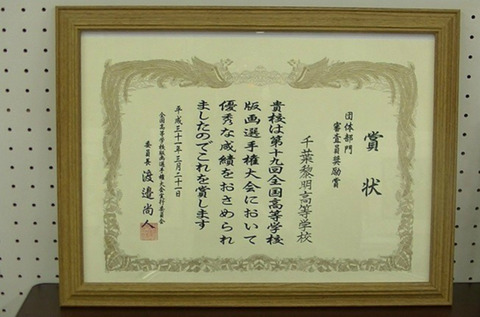 賞状
団体部門
審査員奨励賞
千葉黎明高等学校
貴校は第十九回全国高等学校
版画選手権大会において
優秀な成績をおさめられ
ましたのでこれを賞します
平成三十一年三月二十一日
全国高等学校版画選手権大会実行委員会
委員長 渡邉尚人